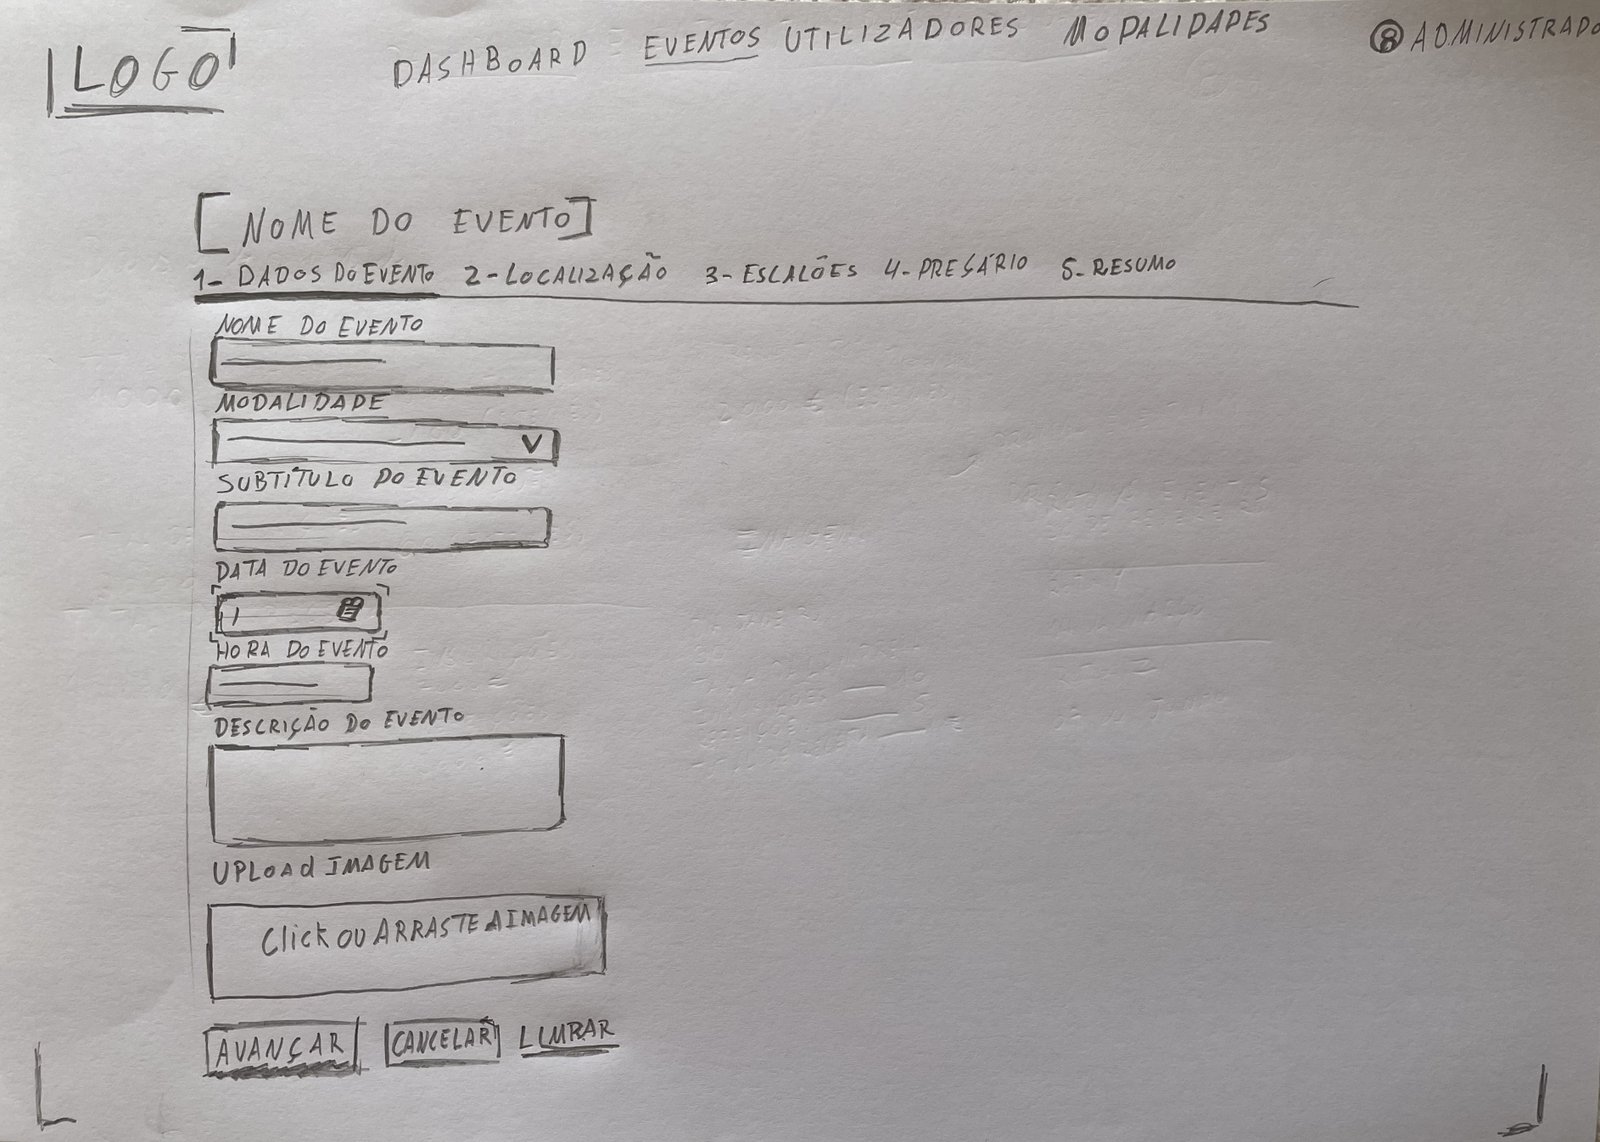 LOGO DASHBOARD EVENTOS UTILIZADORES MODALIDADES ADMINISTRADO
[NOME DO EVENTO]
1- DADOS DO EVENTO 2-LOCALIZAÇÃO 3-ESCALÕES 4-PREÇÁRIO 5-RESUMO
NOME DO EVENTO
MODALIDADE
SUBTÍTULO DO EVENTO
DATA DO EVENTO
HORA DO EVENTO
DESCRIÇÃO DO EVENTO
UPLOAd IMAGEM
Click OU ARRASTE A IMAGEM
AVANÇAR CANCELAR LIMPAR